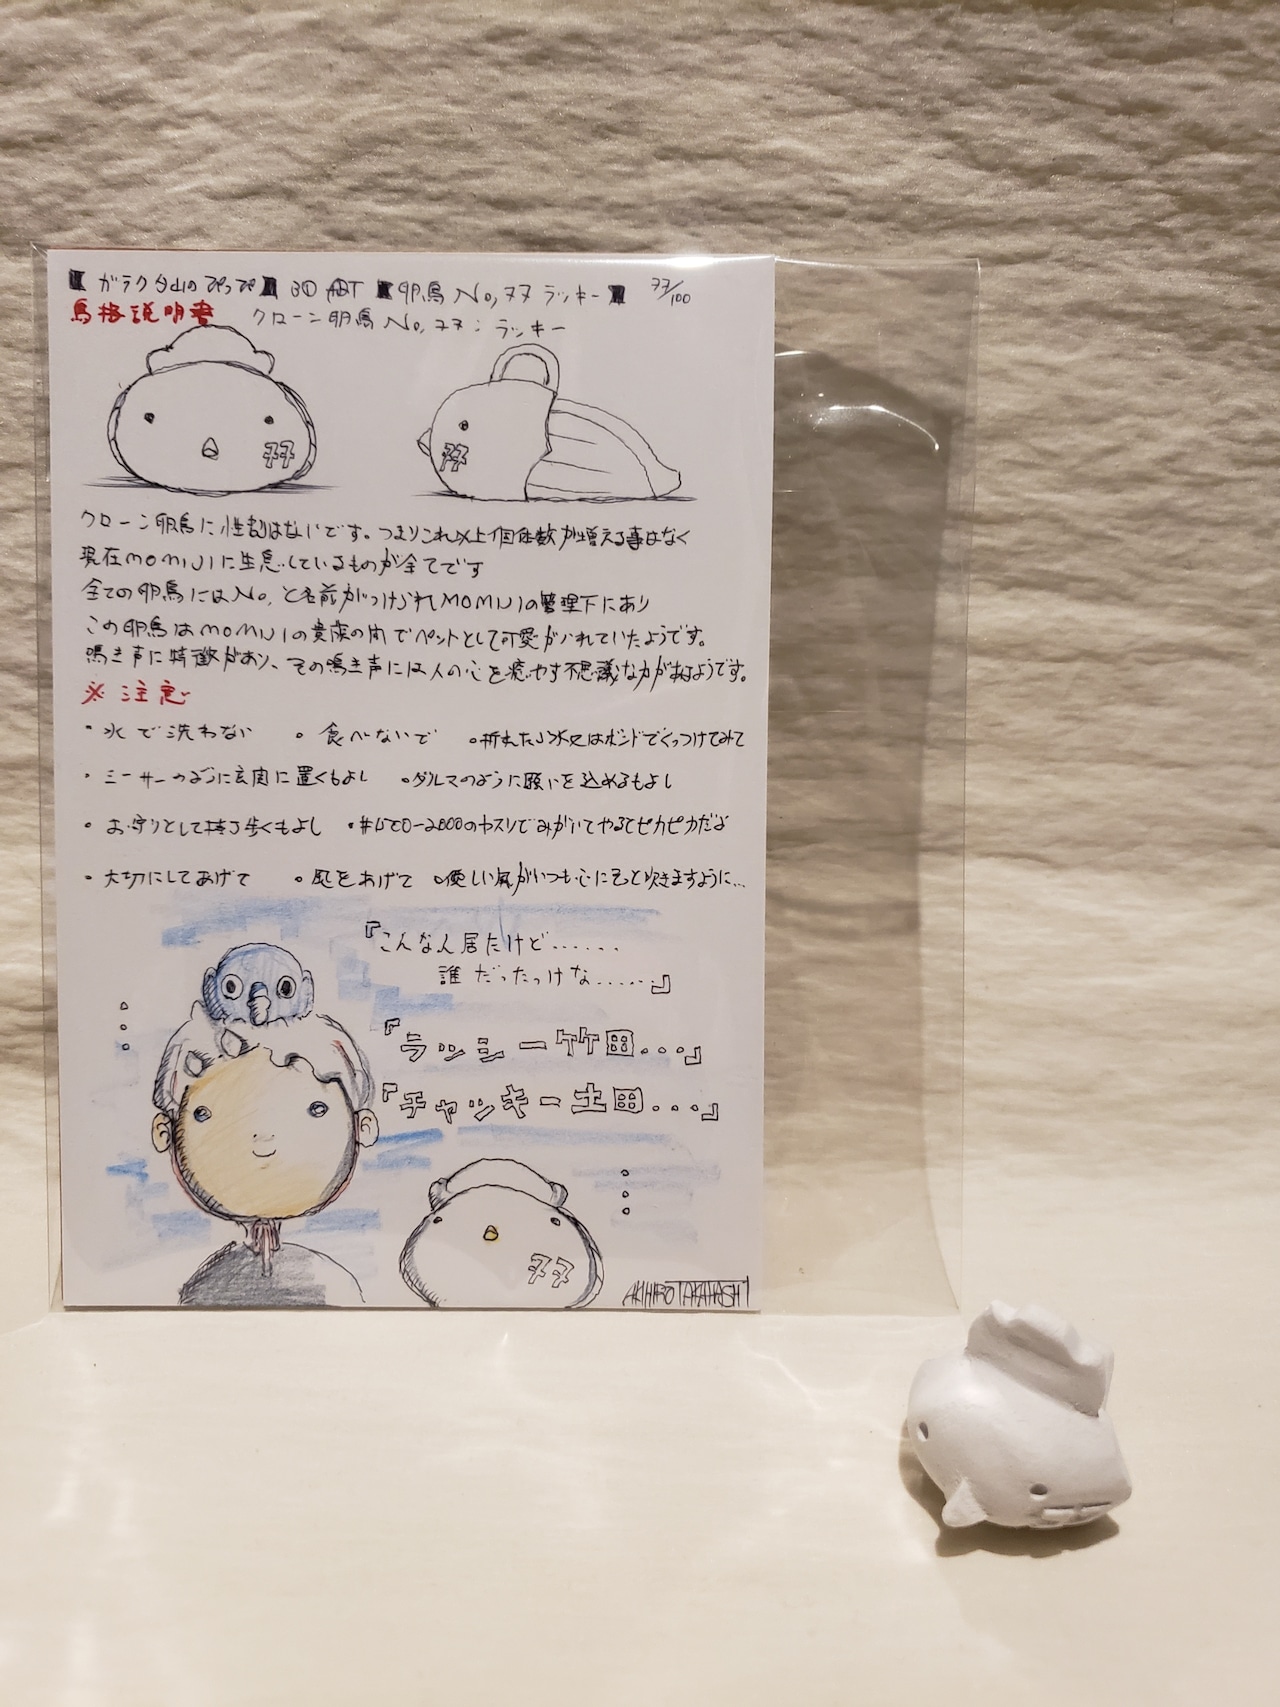 【ガラクタ山のぷっぷ】3D ART【卵鳥No,77 ラッキー】 77/100
鳥格説明書 クローン卵鳥No,77:ラッキー
77
77
クローン卵鳥に性別はないです。つまりこれ以上個体数が増える事はなく
現在MOMIJIに生息しているものが全てです
全ての卵鳥にはNo,と名前がつけられMOMIJIの管理下にあり
この卵鳥はMOMIJIの貴族の間でペットとして可愛がられていたようです。
鳴き声に特徴があり、その鳴き声には人の心を癒やす不思議な力があるようです。
※注意
・水で洗わない ・食べないで ・折れたり欠けはボンドでくっつけてみて
・シーサーのように玄関に置くもよし ・ダルマのように願いを込めるもよし
・お守りとして持ち歩くもよし ・#1500-2000のヤスリでみがいてやるとピカピカだよ
・大切にしてあげて ・風をあげて ・優しい風がいつも心に吹きますように...
『こんな人居たけど......
誰だったっけな......』
『ラッシー竹田...』
『チャッキー土田...』
77
AKIHIRO TAKAHASHI